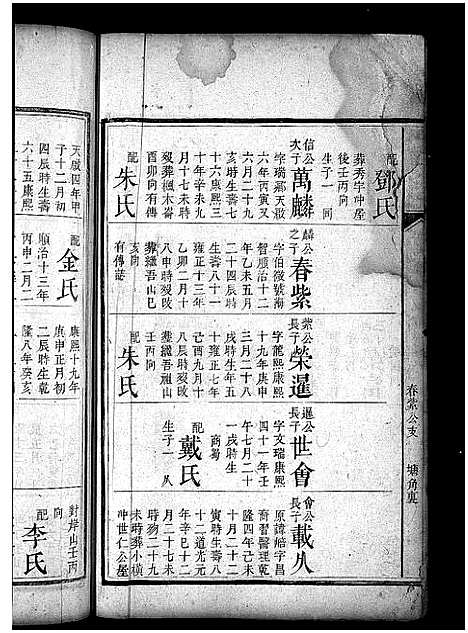 配鄧氏
葬秀宇冲屋
後壬丙向
生子一 同
信公次子萬麟
字瑞鄰天啟
六年丙寅又
六月二十九
亥時生壽五
十六康熙三
十年辛未九
月十七未時
歿葬楓木崙
酉卯向有傳
配朱氏
天啟四年甲
子十二月初
四辰時生壽
六十五康熙
麟公之子春紫
字伯薇號海
智順治十二
年乙未五月
二十四辰時
生壽六十一
雍正十三年
乙卯二月十
八申時歿
葬纖吾山巳
亥向
有傳誌
配金氏
順治十三年
丙申二月二
紫公長子榮暹
字麓熙康熙
十九年庚申
三月二十八
戌時生年五
十雍正七年
己酉九月十
八辰時歿
葬纖吾祖山
壬丙向
配朱氏
康熙十九年
庚申正月初
二辰時生乾
隆八年癸亥
暹公長子世會
字文瑞康熙
四十一年壬
午七月二十
一戌時生
商蜀
配戴氏
生子一 㒰
會公長子載㒰
原諱皓字昌
齋習醫理乾
隆四年己未
十月二十二
寅時生壽八
十二道光元
年辛巳十二
月二十七未
時歿二十九
未時葬小橫
冲世仁公屋
對岸山壬丙
向
配李氏
春紫公支
塘角裏